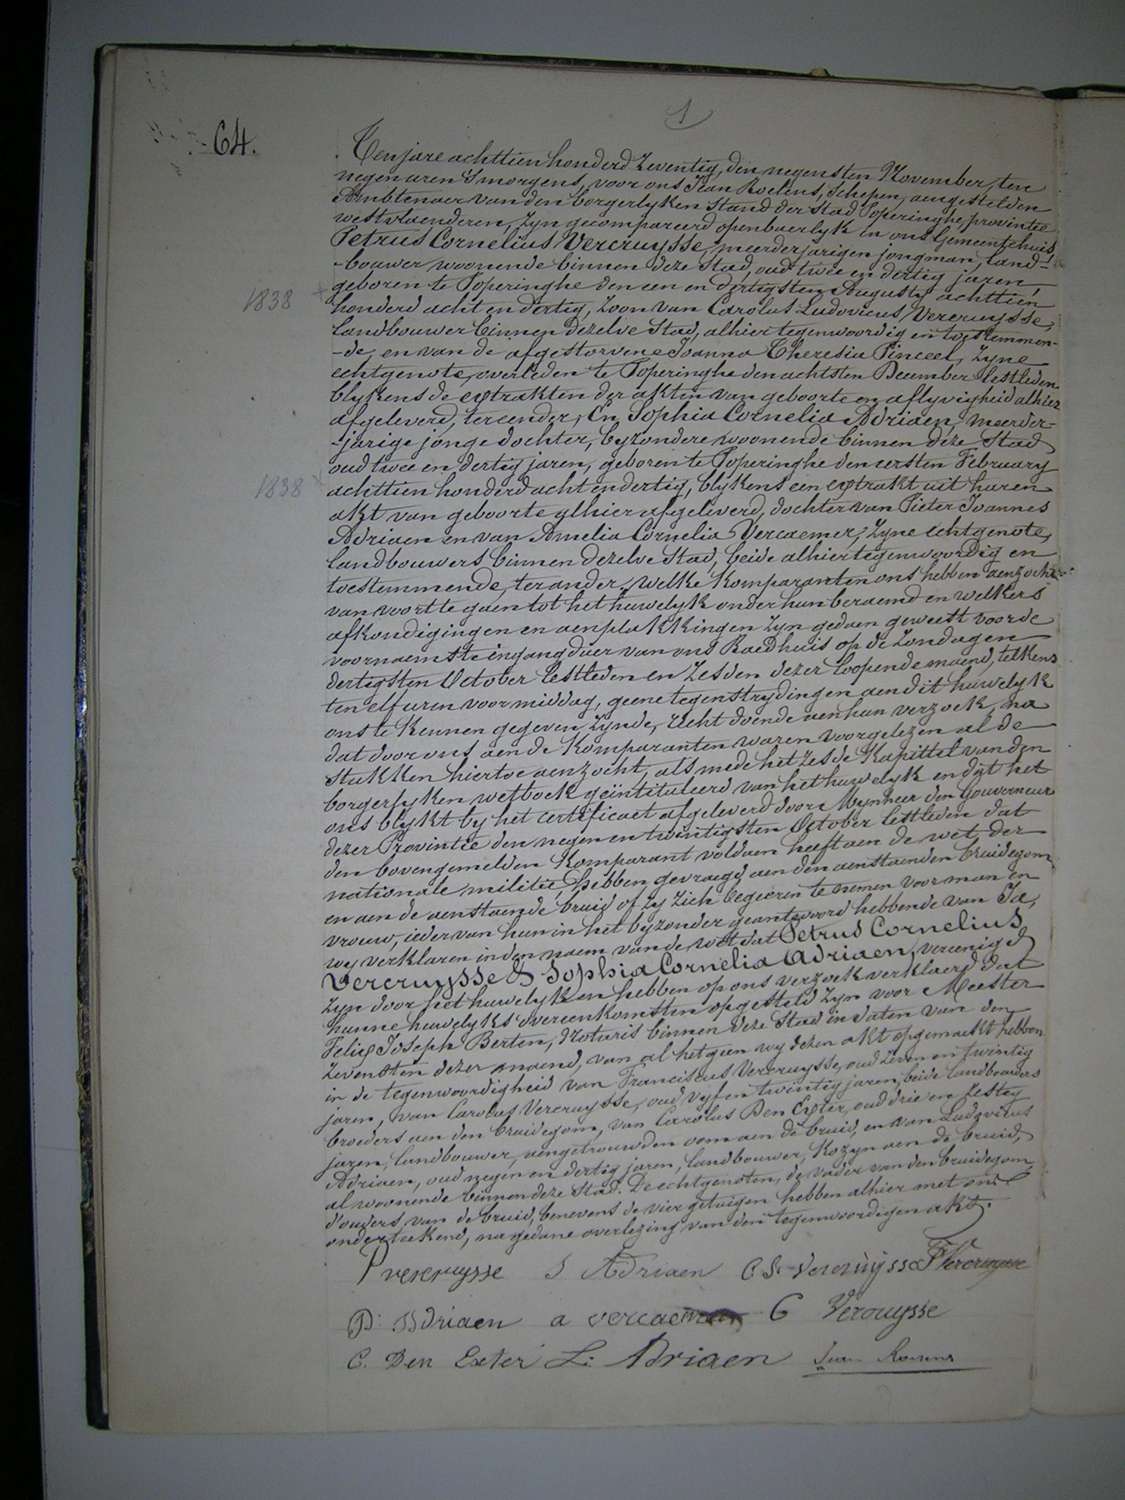 1
64.
Ten jare achttien honderd zeventig, den negensten November, ten
negen uren s'morgens, voor ons Jean Roelens, schepen, aengestelden
Ambtenaer van den borgerlyken stand der stad Poperinghe, provintie
westvlaenderen, zyn gecompareerd openbaerlyk in ons Gemeentehuis
Petrus Cornelius Vercruysse, meerderjarigen jongman, land-
-bouwer woonende binnen deze stad, oud twee en dertig jaren
geboren te Poperinghe den een en dertigsten Augusty achttien
1838
honderd acht en dertig, zoon van Carolus Ludovicus Vercruysse,
landbouwer binnen dezelve stad, alhier tegenwoordig en toestemmen-
-de, en van de afgestorvene Joanna Theresia Pinceel, zyne
echtgenote, overleden te Poperinghe den achtsten December lestleden
blykens de extrakten der akten van geboorte en aflyvigheid alhier
afgeleverd, ter eender, En Sophia Cornelia Adriaen, meerder-
-jarige jonge dochter, byzondere woonende binnen deze Stad
oud twee en dertig jaren, geboren te Poperinghe den eersten February
1838
achttien honderd acht en dertig, blykens een extrakt uit haren
akt van geboorte alhier afgeleverd, dochter van Pieter Joannes
Adriaen en van Amelia Cornelia Vercaemer, zyne echtgenote,
landbouwers binnen dezelve Stad, beide alhier tegenwoordig en
toestemmende, ter ander, welke komparanten ons hebben aenzocht
van voort te gaen tot het huwelyk onder hun beraemd en welkers
afkondigingen en aenplakkingen zyn gedaen geweest voor de
voornaemste ingangduer van ons Raedhuis op de zondagen
dertigsten October lestleden en zesden dezer loopende maend, telkens
ten elf uren voormiddag, geene tegenstrydingen aen dit huwelyk
ons te kennen gegeven zynde, recht doende aen hun verzoek, na
dat door ons aen de komparanten waren voorgelezen al de
stukken hiertoe aenzocht, alsmede het zesde Kapittel van den
borgerlyken wetboek geïntituleerd van het huwelyk en dat het
ons blykt by het certificaet afgeleverd door Mynheer den Gouverneur
dezer Provintie den negen en twintigsten October lestleden dat
den bovengemelden Komparant voldaen heeft aen de wet der
nationale militie, hebben gevraegd aen den aenstaenden bruidegom
en aen de aenstaende bruid of zy zich begeeren te nemen voor man en
vrouw, ieder van hun in het byzonder geantwoord hebbende van Ja,
wy verklaren in den naem van de wet dat Petrus Cornelius
Vercruysse & Sophia Cornelia Adriaen, vereenigd
zyn door het huwelyk en hebben op ons verzoek verklaerd dat
hunne huwelyks overeenkomsten opgesteld zyn voor Meester
Felix Joseph Berten, Notaris binnen deze Stad in daten van den
zevensten dezer maend, van al hetgeen wy dezen akt opgemaekt hebben
in de tegenwoordigheid van Franciscus Vercruysse, oud zeven en twintig
jaren, van Carolus Vercruysse, oud vyf en twintig jaren, beide landbouwers
broeders aen den bruidegom, van Carolus Den Exter, oud drie en sestig
jaren, landbouwer, aengetrouwden oom aen de bruid, en van Ludovicus
Adriaen, oud negen en dertig jaren, landbouwer, kozyn aen de bruid,
al woonende binnen deze Stad. De echtgenoten, de vader van den bruidegom
d'ouders van de bruid, benevens de vier getuigen hebben alhier met ons
onderteekend, na gedane overlezing van den tegenwoordigen akt.
P vercruysse S Adriaen C L Vercruysse F Vercruysse
P: Adriaen a vercaemer C Vercruysse
C. Den Exter L: Adriaen Jean Roelens